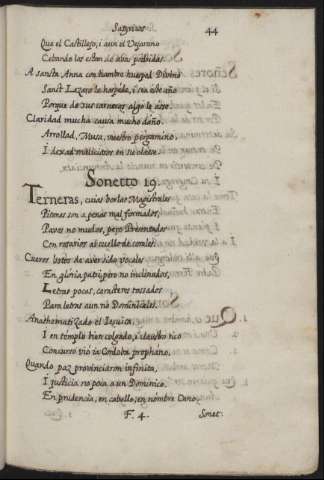 Satyricos 44
Que el Castillejo, i aun el Vejarano
Cebando los estan de abas podridas.
A sancta Anna con hambre huesped Divino
Sanct Lazaro le hospeda, i sea este año
Porque de sus carneros algo le
Claridad mucha causa mucho daño.
Arrollad, Musa, vuestro pergamino,
I dexad maliciosos en su
Sonetto 19.
Terneras, cuias borlas Magistrales
Pitones son a penas mal formados,
Pavos no mudos, pero Presentados
Con rosarios al cuello de corales.
Cueros listos de aver sido vocales
En gloria patri, pero no inclinados,
Letras pocas, caracteres tassados
Para letras aun no Dominicales.
Anathematizado el Iesuita,
I en templo bien colgado, i claustro rico
Concurso vió la Cordoba prophano,
Quando paz provinciaron infinita,
I justicia no poca a un Dominico.
En prudencia, en cabello, en nombre Cano.
F. 4. Sonet: